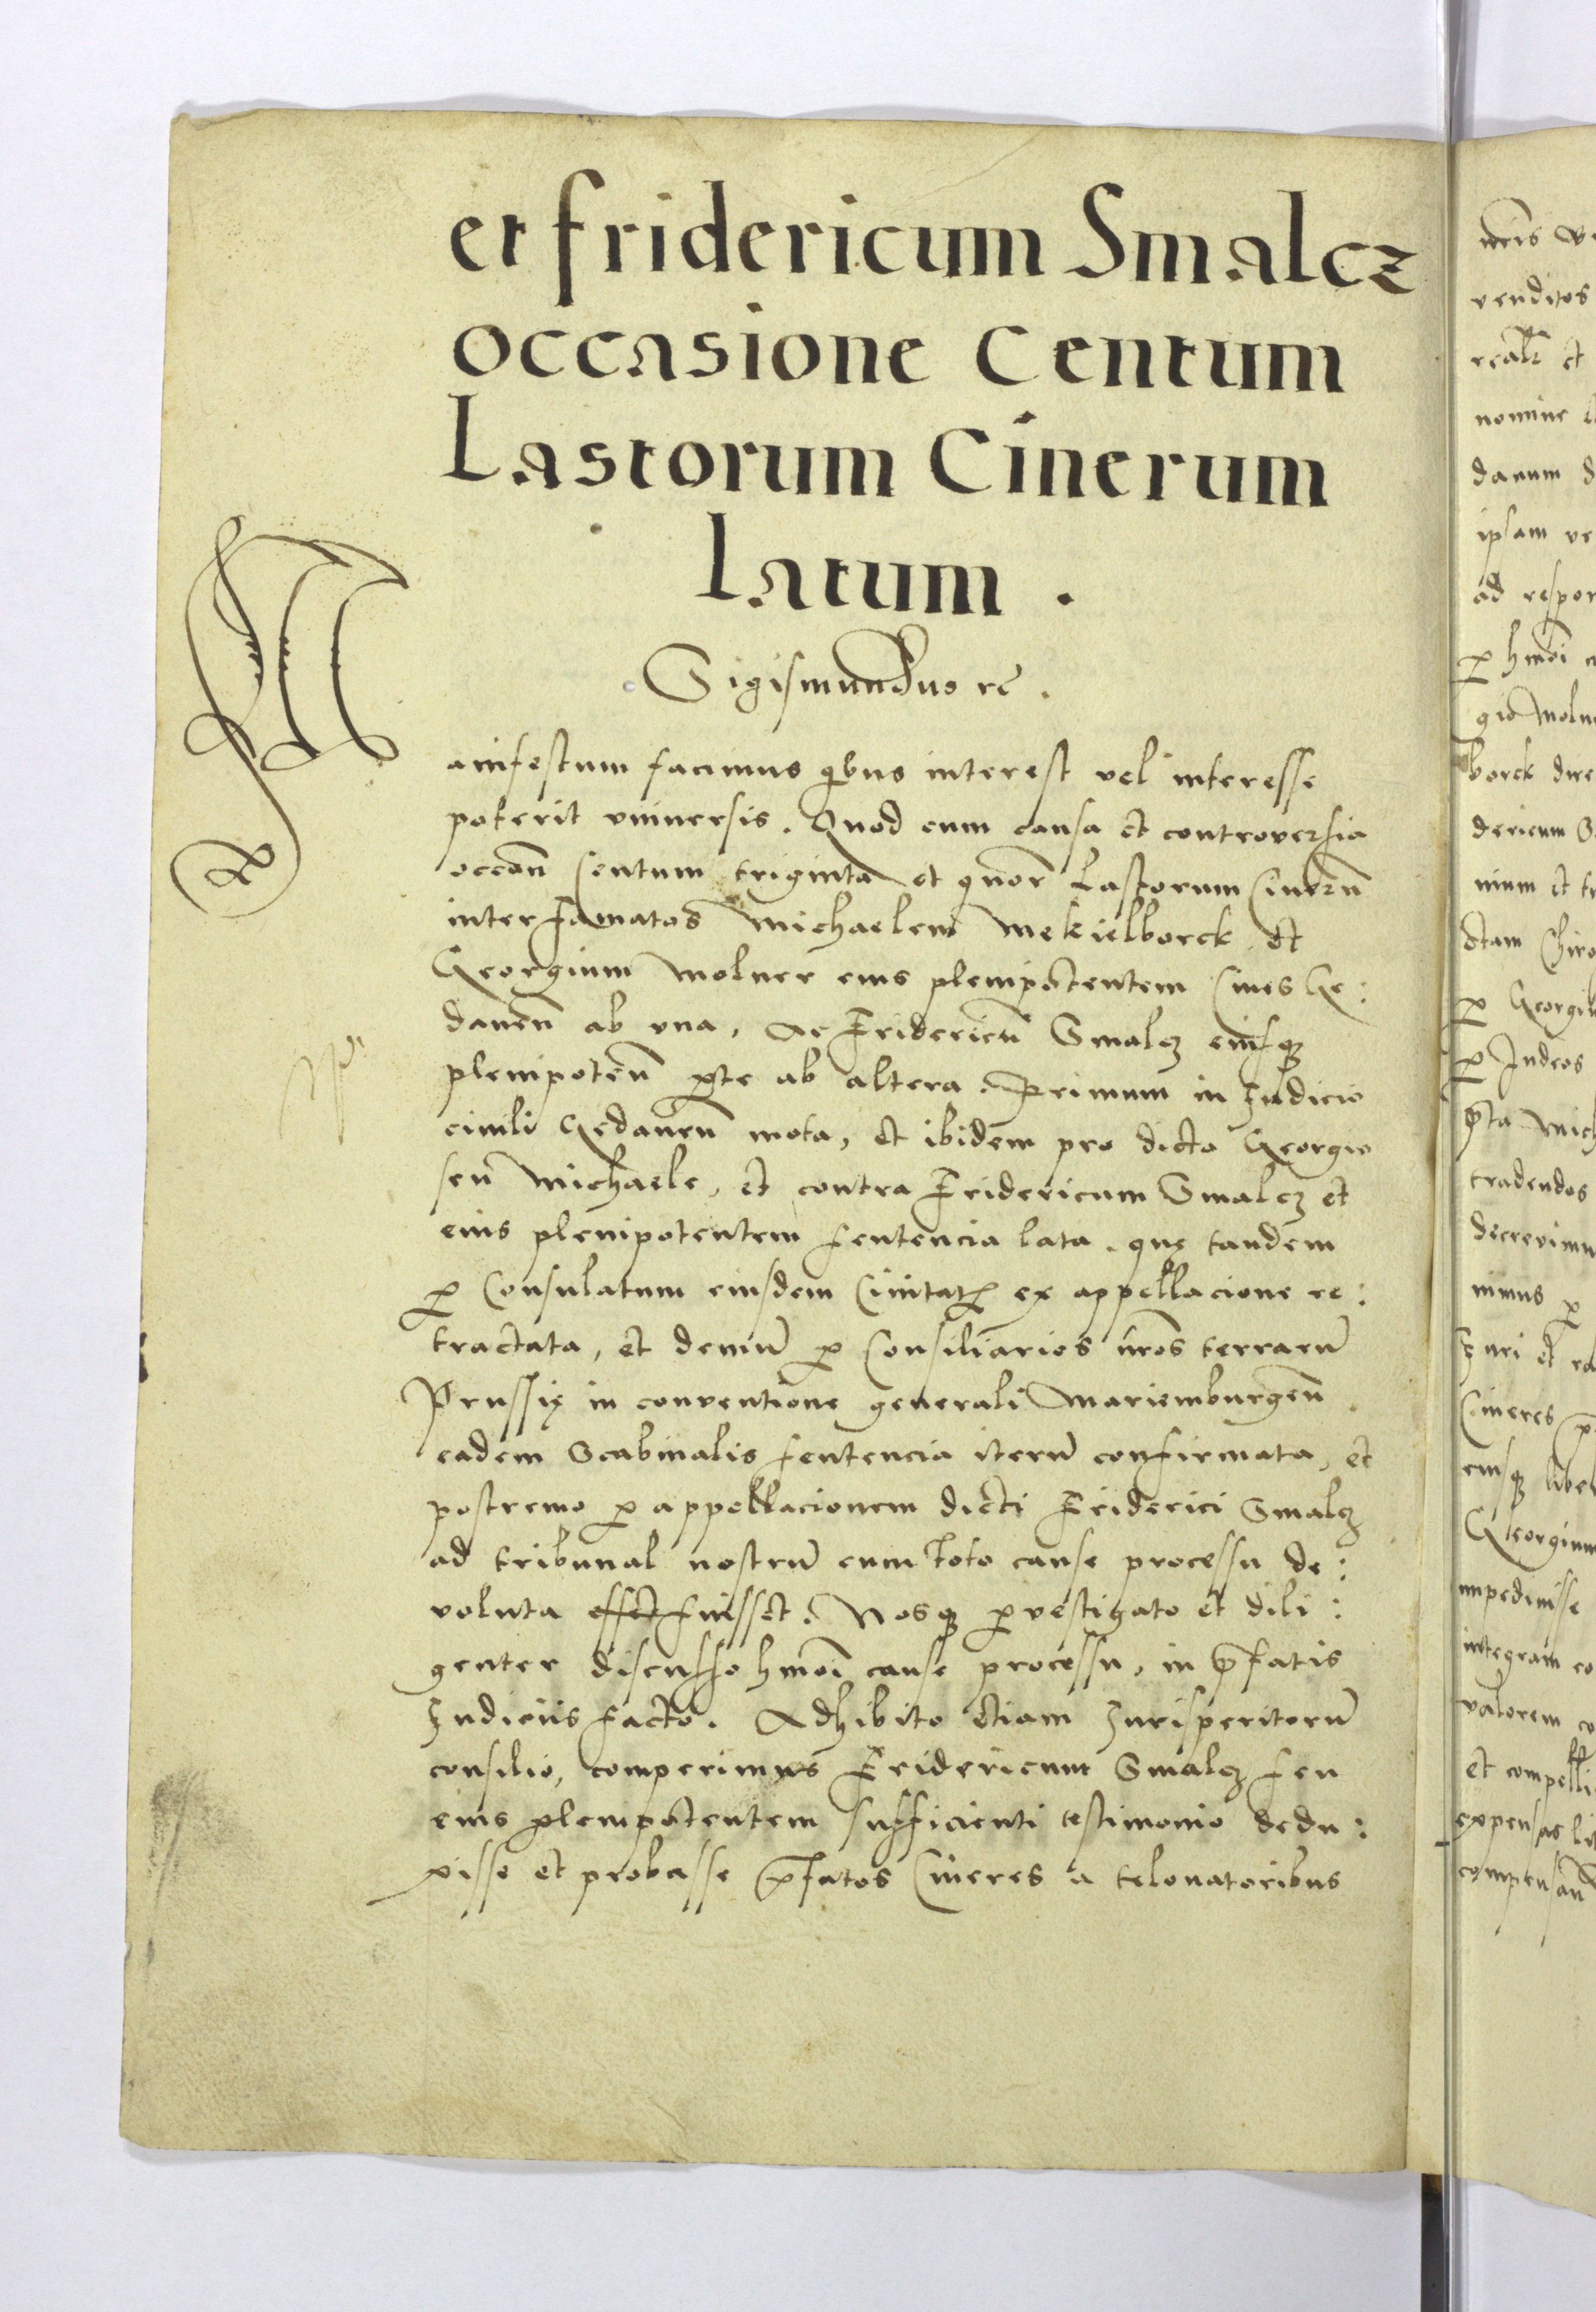 et fridericum Smalcz
occasione Centum
Lastorum Cinerum
latum .
Sigismundus rē .
Manifestum facimus qibus interest vel interesse
poterit vniuersis . Quod cum causa et controuersia
occaōn Centum triginta et qnōr Lastorum Cinerū
inter famatos Michaelem Mekielborck et
Georgium Molner eius plenipotentem Ciues Ge:
danēn ab vna, ac Fridericū Smalcz eiusqꝫ
plenipotēn ꝑte ab altera. Primum in Iudicio
ciuili Gedanēn mota, et ibidem pro dicto Georgio
seu Michaele, et contra Fridericum Smalcz et
eius plenipotentem sentencia lata. quę tandem
ꝑ Consulatum eiusdem Ciuitatꝭ ex appellacione re:
tractata, et demū ꝑ Consiliarios nr̄os terrarū
Prussię in conuentione generali Mariemburgēn
eadem Scabinalis sentencia iterū confirmata, et
postremo ꝑ appellacionem dicti Friderici Smalcz
ad tribunal nostrū cum toto cause processu de:
voluta esset fuisset. Nosqꝫ ꝑvestigato et dili:
genter discusso hmōi cause processu, in p̄fatis
Iudiciis facto. Adhibito etiam Iurisperitorū
consilio, comperimus Fridericum Smalcz seu
eius plenipotentem sufficienti testimonio dedu:
xisse et probasse p̄fatos Cineres a telonatoribus
venditos
nomine
ipsam
ad
borck
dericum
ꝑ
ꝑ Iudeos
tradendos
Cineres
impedimisse
integram
valorem
expensas